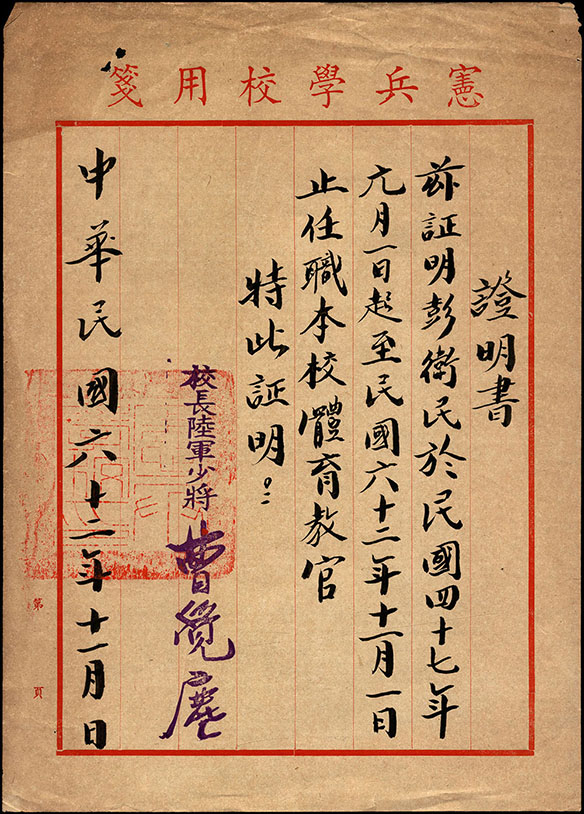 憲兵學校用箋
證明書
茲証明彭衛民於民國四十七年
九月一日起至民國六十二年十一月一日
止任職本校體育教官
特此証明。
校長陸軍少將 曹覺塵
中華民國六十二年十一月 日
第 頁